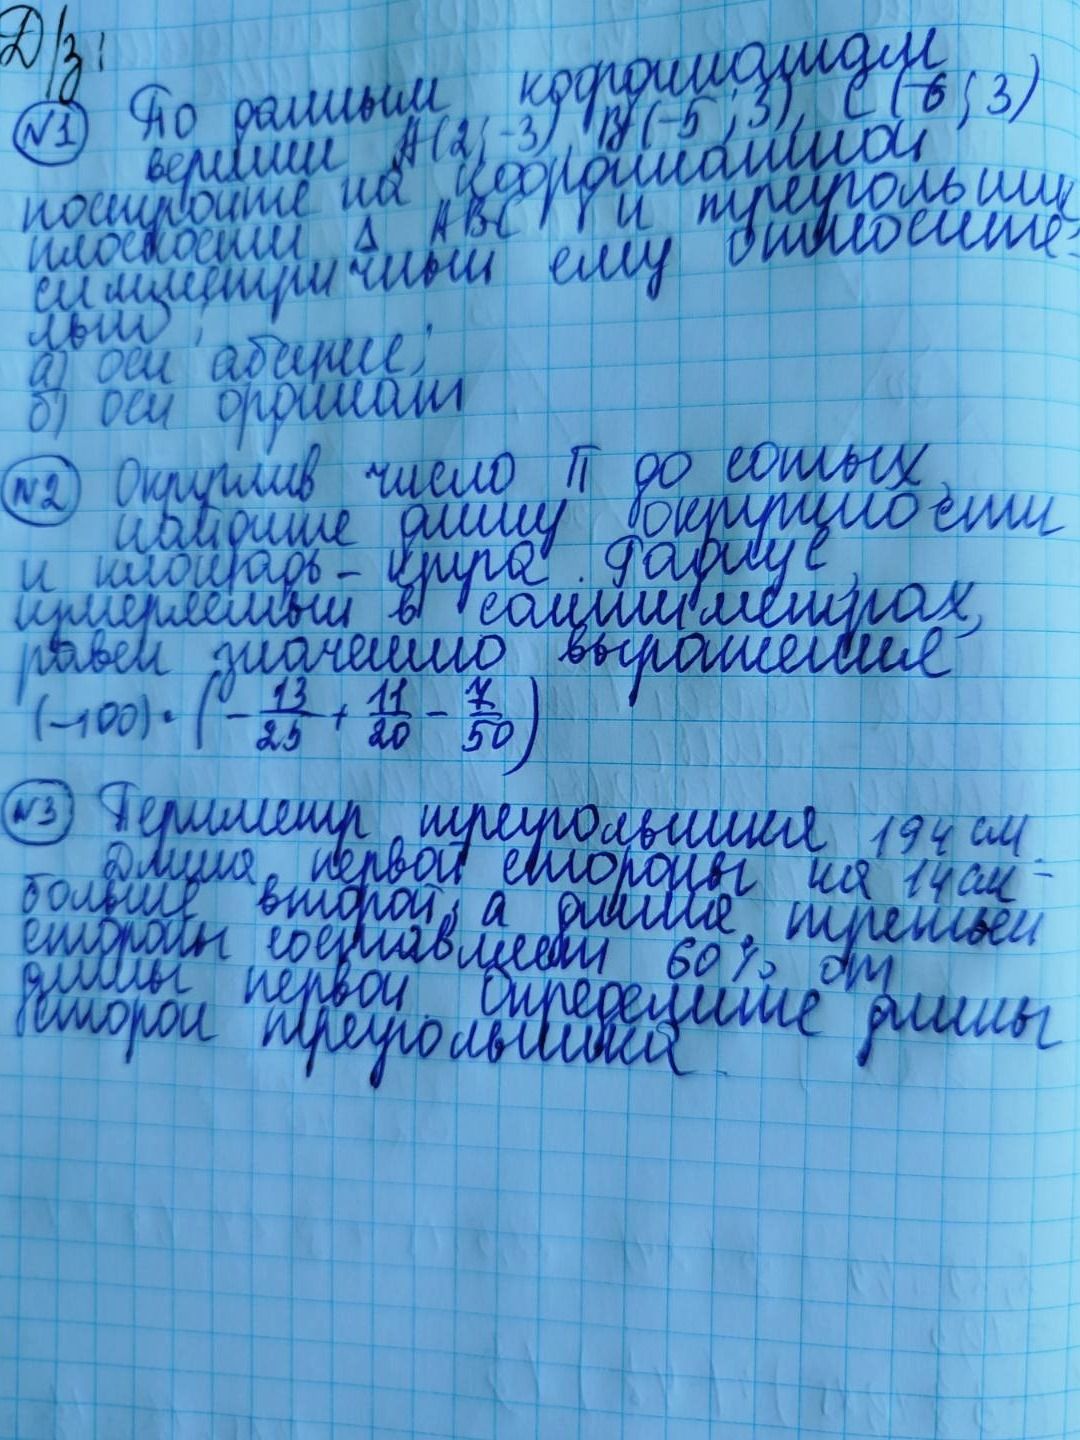 Д/з:
№1 По данным координатам
вершин A(2;-3), B(-5;3), C(-6;3)
постройте на координатной
плоскости Δ ABC и треугольник
симметричный ему относите-
льно:
а) оси абсцисс;
б) оси ординат
№2 Округлив число π до сотых,
найдите длину окружности
и площадь - круга. Радиус,
измеряемый в сантиметрах,
равен значению выражения
(-100)·(-13/25 + 11/20 - 7/50)
№3 Периметр треугольника 194 см.
Длина первой стороны на 14 см -
больше второй, а длина третьей
стороны составляет 60% от
длины первой. Определите длины
сторон треугольника.